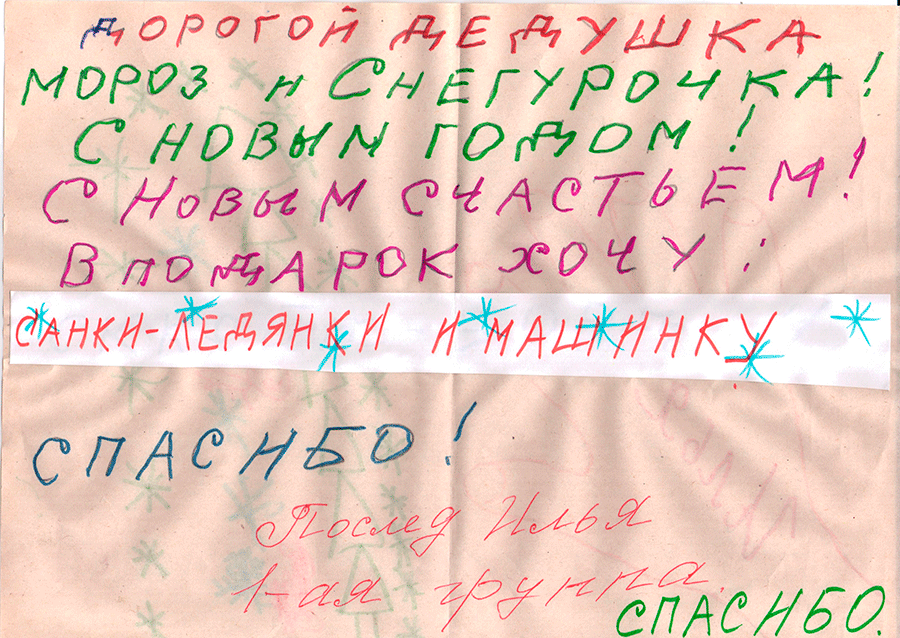 ДОРОГОЙ ДЕДУШКА
МОРОЗ и СНЕГУРОЧКА!
С НОВЫМ ГОДОМ!
С НОВЫМ СЧАСТЬЕМ!
В ПОДАРОК ХОЧУ:
САНКИ-ЛЕДЯНКИ И МАШИНКУ
СПАСИБО!
Послед Илья
1-ая группа
СПАСИБО.